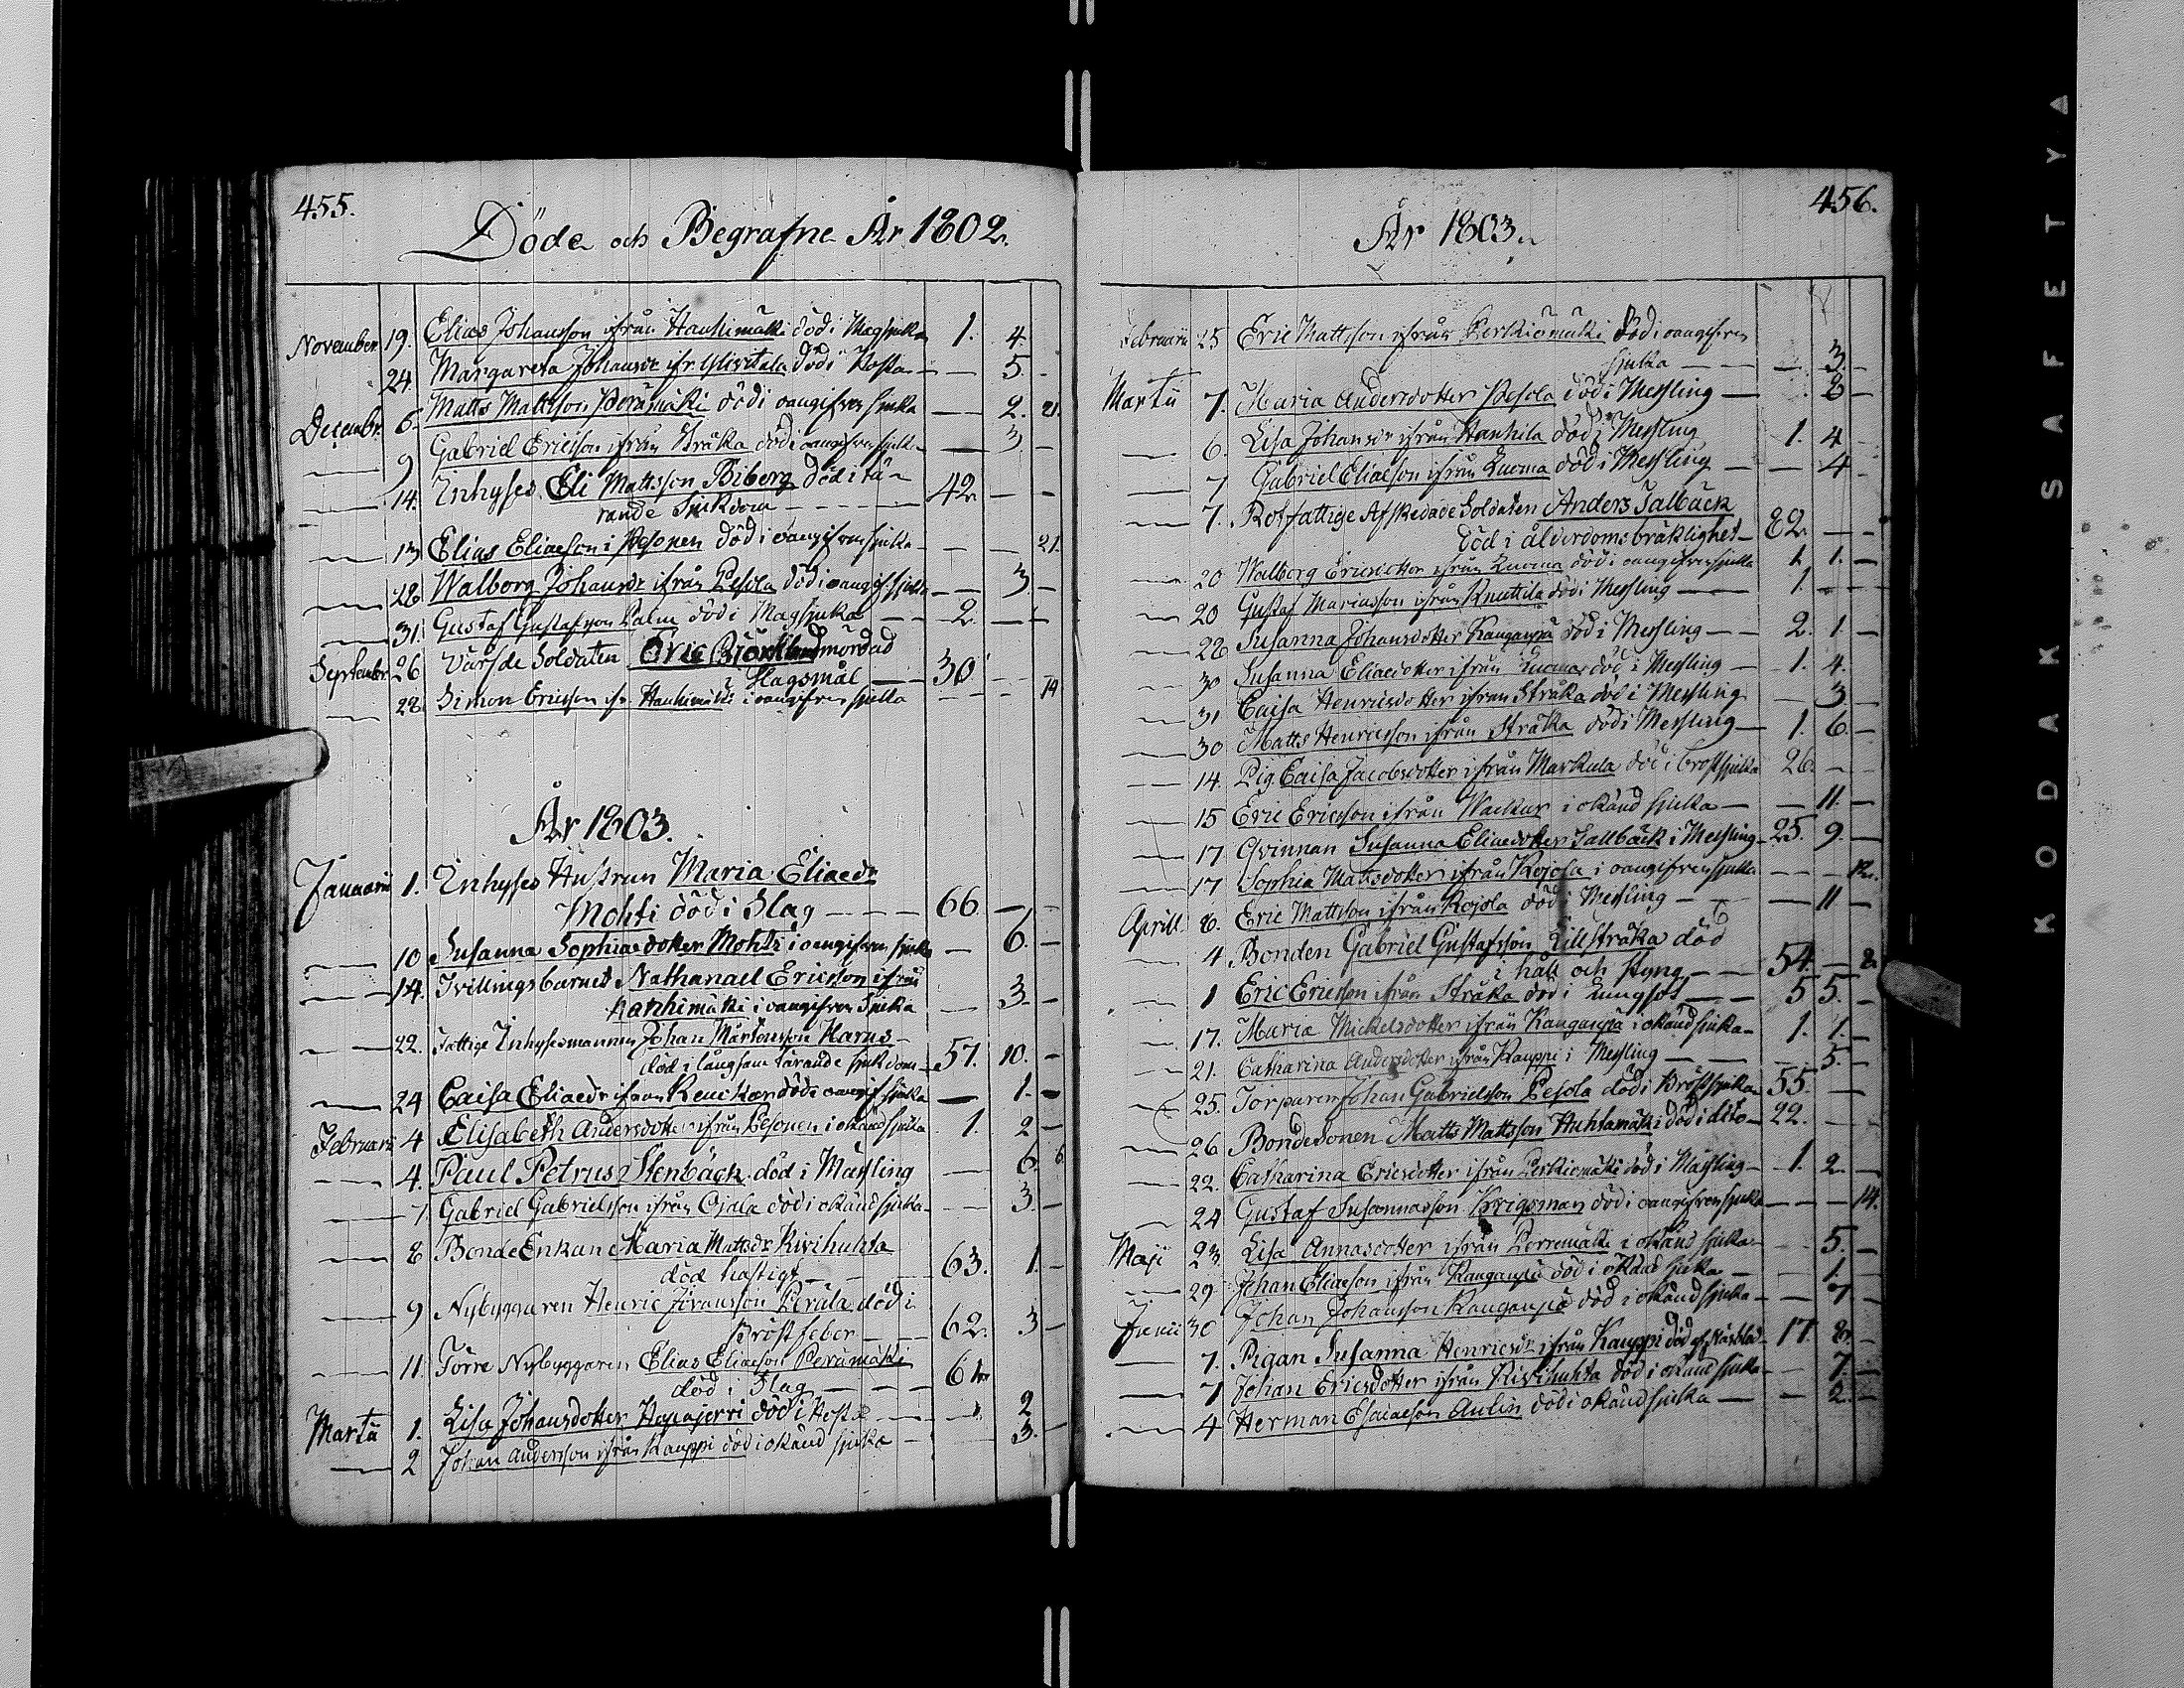 455.
Döde och Begrafne År 1802.
November 19. Elias Johansson ifrån Hanhimäki död i Magsjuka 1. 4.
24. Margareta Johansdr ifr. död i Hosta — — 5. -
Decembr. 6. Matts Mattsson Perämäki död i oangifven sjuka — 2. 21.
— 9 Gabriel Ericsson ifrån Stråka död i oangifven sjuk. — 3 -
— 14. Inhyses Eli Mattsson Biberg död i tä- 42. — -
rande Sjukdom
— 13 Elias Eliaeson i Pesonen död i oangifven sjuka - — 21.
— 28 Walborg Johansdr ifrån Pesola död i oangif. sjuka — 3 -
— 31. Gustaf Gustafsson Palm död i Magsjuka — 2. — -
September 26 Värfde Soldaten Eric Björklund mördad
i Slagsmål — 30
— 28. Simon Ericsson ifr. Hanhimäki i oangifven sjuka — — 14
År 1803.
Januarii 1. Inhyses Hustrun Maria Eliaedr
Mohti död i Slag — — — 66. — -
— 10 Susanna Sophiaedotter Mohti i oangifven sjuka — 6. -
— 14. Tvillingsbarnet Nathanael Ericsson ifrån
Hanhimäki i oangifven Sjuka — 3. -
— 22. Fattige Inhysesmannen Johan Mårtensson Harus -
död i långsam tärande sjukdom - 57. 10. -
— 24 Caisa Eliaedr ifrån död i oangif. sjuka — 1. -
Februarii 4 Elisabeth Andersdotter ifrån Pesonen i okänd sjuka 1. 2 -
— 4. Paul Petrus Stenbäck död i Mässling — 6. 6
— 7 Gabriel Gabrielsson ifrån Ojala död i okänd sjuka - — 3. -
— 8 BondeEnkan Maria Mattsdr Kivihuhta
död hastigt — — 63. 1. -
— 9 Nybyggaren Henric Jöransson Perälä död i
Bröstfeber — — 62. 3 -
— 11. Förre Nybyggaren Elias Eliaeson Perämäki
död i Slag — — — 61.
Martii 1. Lisa Johansdotter Haapajerri död i Hosta — — 2
— 2 Johan Andersson ifrån Kauppi död i okänd sjuka — 3. -
456.
År 1803.
Februarii 25 Eric Mattsson ifrån Perkiömäki död i oangifven
sjuka — — — 3. -
Martii 7. Maria Andersdotter Pesola död i Messling — 8 -
— 6. Lisa Johansdr ifrån Hanhila död i Messling 1. 4 -
— 7 Gabriel Eliaeson ifrån Luoma död i Messling — — 4 -
— 7. Rotfattige Afskedade Soldaten Anders Salbäck
död i ålderdomsbräklighet — 82. — -
— 20 Walborg Ericsdotter ifrån Luoma död i oangifven sjuka 1. 1. -
— 20 Gustaf Mariasson ifrån Knuttila död i Messling — 1. - -
— 28 Susanna Johansdotter Kanganpä död i Messling — — 2. 1. -
— 30 Susanna Eliaedotter ifrån Luoma död i Messling — 1. 4.
— 31 Caisa Henricsdotter ifrån Stråka död i Messling — 3 -
— 30 Matts Henricsson ifrån Stråka död i Messling — 1. 6. -
— 14. Pig. Caisa Jacobsdotter ifrån Markula död i bröstsjuka 26. - -
— 15 Eric Ericsson ifrån Wackur i okänd sjuka — — 11. -
— 17 Qvinnan Susanna Eliaedotter Sallbäck i Messling - 25. 9. -
— 17 Sophia Mattsdotter ifrån Kojola i oangifven sjuka - - - 12.
Aprill 8. Eric Mattsson ifrån Kojola död i Messling — — 11 -
— 4 Bonden Gabriel Gustafsson Lillstråka död
i håll och styng — — 54. — 2.
— 1 Eric Ericsson ifrån Stråka död i Lungsot — — 5 5. -
— 17. Maria Mickelsdotter ifrån Kanganpä i okänd sjuka - 1. 1. -
— 21. Catharina Andersdotter ifrån Kauppi i Messling — — 5. -
— 25. Torparen Johan Gabrielsson Pesola död i Bröstsjuka 55. —
— 26 Bondesonen Matts Mattsson Huhtamäki död i dito - 22. - -
— 22. Catharina Ericsdotter ifrån Perkiömäki död i Mässling — 1. 2. -
— 24 Gustaf Susannasson Krigsman död i oangifven sjuka — — — 14.
Maji 23. Lisa Annasdotter ifrån Perremäki i okänd sjuka - — 5. -
— 29 Johan Eliaeson ifrån Kanganpä död i okänd sjuka — 1. -
Junii 30 Johan Johansson Kanganpä död i okänd sjuka — — 7 -
— 7. Pigan Susanna Henricsdr ifrån Kauppi död af 17. 8. -
— 7 Johan Ericsdotter ifrån Kivihuhta död i okänd sjuka - — 7. -
— 4 Herman Esaiaeson Aulin död i okänd sjuka — — 2. -
KODAK SAFETY